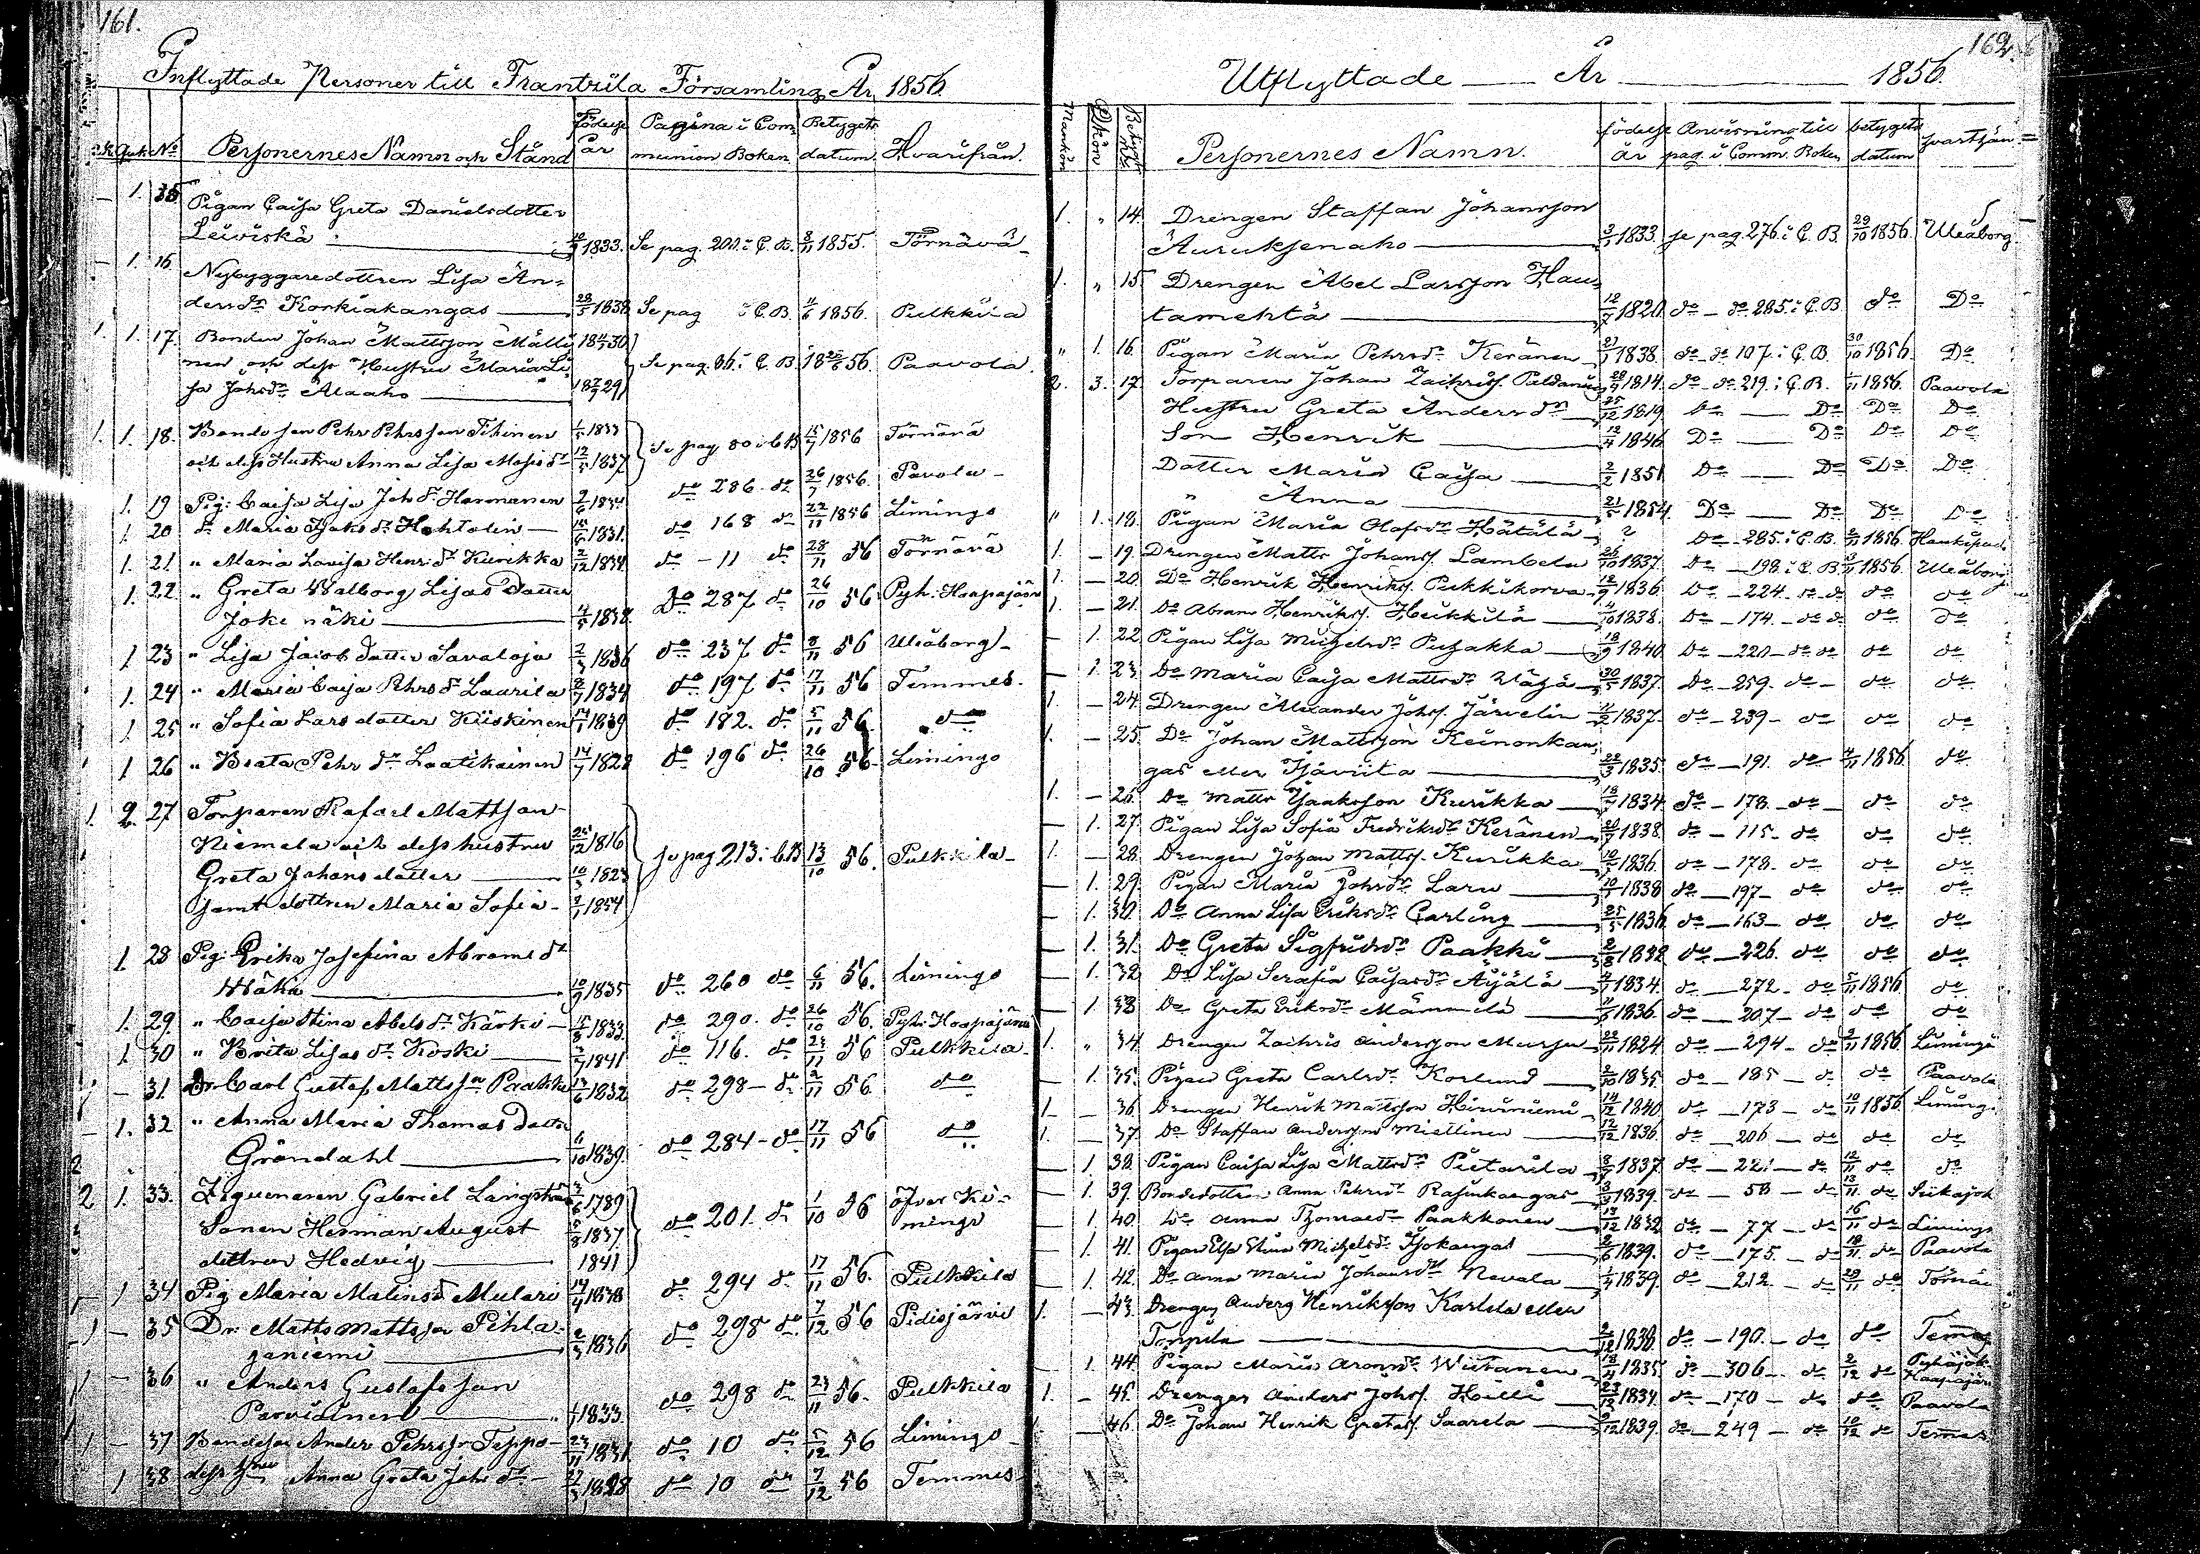 161.
Inflyttade Personer till Frantsila Församling År 1856.
No Personernes Namn och Stånd födelse år Pagina i Communion Boken Betygets datum Hvarifrån.
1. Pigan Caisa Greta Danielsdotter
Leiviskä 1833. Se pag. 200. i C.B. 8/11 1855. Törnävä
1. 16. Nybyggaredottren Lisa An-
dersdr Korkiakangas 1838 Se pag i C.B. 1856. Pulkkila
1. 1. 17. Bonden Johan Mattsson Mälli-
nen och dess Hustru Maria Li- Se pag. 86. i C.B. 56. Paavola.
sa Johsdr Alaaho
1. 1. 18. Bonde son Pehr Pehrsson Tihinen 1/5 1833 se pag 80 i CB 15/7 1856 Törnävä
och dess Hustru Anna Lisa Mosisdr 12/5 1837
1. 19 Pig: Caisa Lisa Joh dr Harmanen do 286 do 26/7 1856. Pavola
1. 20 dr Maria Jakobsdr Hohtolin 1831. do 168 do 22/11 1856 Limingo
1. 21 " Maria Lovisa Henr: dr Kurikka 2/12 1834 do - 11 do 28/11 56 Törnävä
1. 22 " Greta Walborg Lisas Datter
Jokenäki 4/5 1838. Do 287 do 26/10 56 Pyh: Haapajärvi
1 23 " Lisa Jacobs datter Savaloja 2/3 1836 do 237 do 8/11 56 Uleåborg
1. 24 " Maria Caisa Pehrs dr Laurila 1834 do 197 do 17/11 56 Temmes.
1 25 " Sofia Lars datter Kiiskinen 1839 do 182. do 5/11 56. do
1 26 " Beata Pehr dr Laatikainen 14/7 1828 do 196 do 26/10 56 Limingo
1. 2. 27 Torparen Rafael Mattsson
Niemela och dess hustru 1816 se pag 213 i CB 13/10 56. Pulkkila
Greta Johans datter 10/3 1823
samt dottren Maria Sofia 1854
1 28 Pig: Erika Josefina Abrams dr
Mäki 10/9 1835 do 260 do 6/11 56. Limingo
1. 29. " Caisa Stina Abels dr Kärki 15/8 1833. do 290. do 26/10 56. Pyh: Haapajärvi
1 30 " Brita Lisas dr Koski 1841 do 116. do 56 Pulkkila
1 - 31. Dr: Carl Gustaf Matts son Paakki 13/6 1832 do 298 do 2/11 56. do
- 1. 32 " Anna Maria Thomas Datter
Gröndahl 6/10 1839. do 284 do 17/11 56 do
2 1. 33. Ziguenaren Gabriel Långström 1789
Sonen Herman August 5/8 1837 do 201. do 1/10 56 öfver Ki-
mingo
dottren Hedvig 1841
1 34 Pig Maria Malins dr Mulari 14/4 1838 do 294 do 17/11 56. Pulkkila
1 - 35 Dr: Matts Mattsson Pihla-
janiemi 1836 do 298 do 7/12 56 Pidisjärvi
1 - 36 " Anders Gustafs son
Parviainen 1833. do 298 do 23/11 56. Pulkkila
1 - 37 Bondeson Anders Pehrsson Teppo 23/11 1831 do 10 do 5/12 56 Limingo
1 38 dess hustru Anna Greta Johs dr 1828 do 10 do 7/12 56 Temmes
162.
Utflyttade År 1856.
Mankön Qkön Personernes Namn. födelse år Anvisning till pag. i Comm. Boken betygets datum hvarthän.
1. " 14. Drengen Staffan Johansson
Auruksenaho 1833. se pag. 276. i C.B. 29/10 1856. Uleåborg
1. " 15. Drengen Abel Larsson Hau-
tamehtä 12/7 1820. do - do 285. i C.B. do Do
" 1. 16. Pigan Maria Pehrsdr Keränen 1838. do - do 107. i C.B. 30/10 1856. Do
2. 3. 17. Torparen Johan Zachriss. Paldanius 1814. do - do 219. i C.B. 1/11 1856. Paavola
Hustru Greta Andersdr 25/12 1819 Do Do Do Do
Son Henrik 1846. Do Do Do Do
Dotter Maria Caisa 2/2 1851. Do Do Do Do
" Anna 21/5 1854. Do Do Do Do
" 1. 18. Pigan Maria Olofsdr Hätälä ? Do - 285. i C.B. 1856. Haukipud.
1. - 19. Drengen Matts Johanss. Lambela 26/10 1837. Do - 198. i C.B. 1856. Uleåborg
1. - 20. Do Henrik Henrikss. Pukkikorva 12/9 1836 Do - 224 - do do do do
1. - 21. Do Abram Henrikss. Heikkilä 1838. Do - 174. - do do do do
- 1. 22. Pigan Lisa Michelsdr Puhakka 18/9 1840. Do - 220 - do do do do
- 1. 23. Do Maria Caisa Mattsdr Wäzä 30/5 1837. Do - 259. do - do do
1. - 24. Drengen Alexander Johs. Järvelin 11/2 1837. do - 239 - do do do
1. - 25. Do Johan Mattsson Keinonkan-
gas eller Isoviita 22/3 1835. do - 191. do 1856 do
1. - 26. Do Matts Jaakosson Kurikka 1834. do - 178. - do do do
- 1. 27. Pigan Lisa Sofia Fredriksdr Keränen 1838. do - 115 - do do do
1. - 28. Drengen Johan Mattss. Kurikka 1836. do - 178. do do do
- 1. 29. Pigan Maria Johsdr Laru 1838. do - 197 - do do do
- 1. 30. Do Anna Lisa Eriksdr Carling 25/5 1836. do - 163 - do do do
- 1. 31. Do Greta Sigfridsdr Paakki 1832 do - 226. do do do
- 1. 32. Do Lisa Serafia Caisasdr Äijälä 1834. do - 272 - do 5/11 1856 do
- 1. 33. Do Greta Eriksdr Mämmelä 1836. do - 207 - do do do
1. " 34. Drengen Zachris Andersson Mursu 22/11 1824 do - 294 - do 1856. Limingo
- 1. 35. Pigan Greta Carlsdr Korlund 2/10 1835. do - 185 - do do Paavola
1. - 36. Drengen Henrik Mattsson Hirviniemi 14/12 1840 do - 173 - do 10/11 1856. Liming.
1. - 37. Do Staffan Andersson Miettinen 12/12 1836. do - 206 - do do do
- 1. 38. Pigan Caisa Lisa Mattsdr Pietarila 1837. do - 221 - do 12/11 do do
- 1. 39. Bondedottren Anna Pehrsdr Rasinkangas 1839. do - 58 - do 13/11 do Siikajok
- 1. 40. Do Anna Thomasdr Paakkonen 13/12 1832 do - 77 - do 16/11 do Limingo
- 1. 41. Pigan Elsa Stina Michelsdr Isokangas 2/6 1839. do - 175. - do 18/11 do Paavola
- 1. 42. Do Anna Maria Johansdr Nevala 1839. do - 212 - do 29/11 do Törnäv
1. - 43. Drengen Anders Henriksson Karlela eller
Toppila 1838. do - 190. - do do Temes
- 1. 44. Pigan Maria Aronsdr Wiitanen 18/4 1835. do - 306 - do 2/12 do Pyhäjok. Haapajärv
1. - 45. Drengen Anders Johss. Hälli 23/12 1834. do - 170 - do do Paavola
- 46. Do Johan Henrik Gretass. Saarela 1839. do - 249 - do 10/12 do Temes.